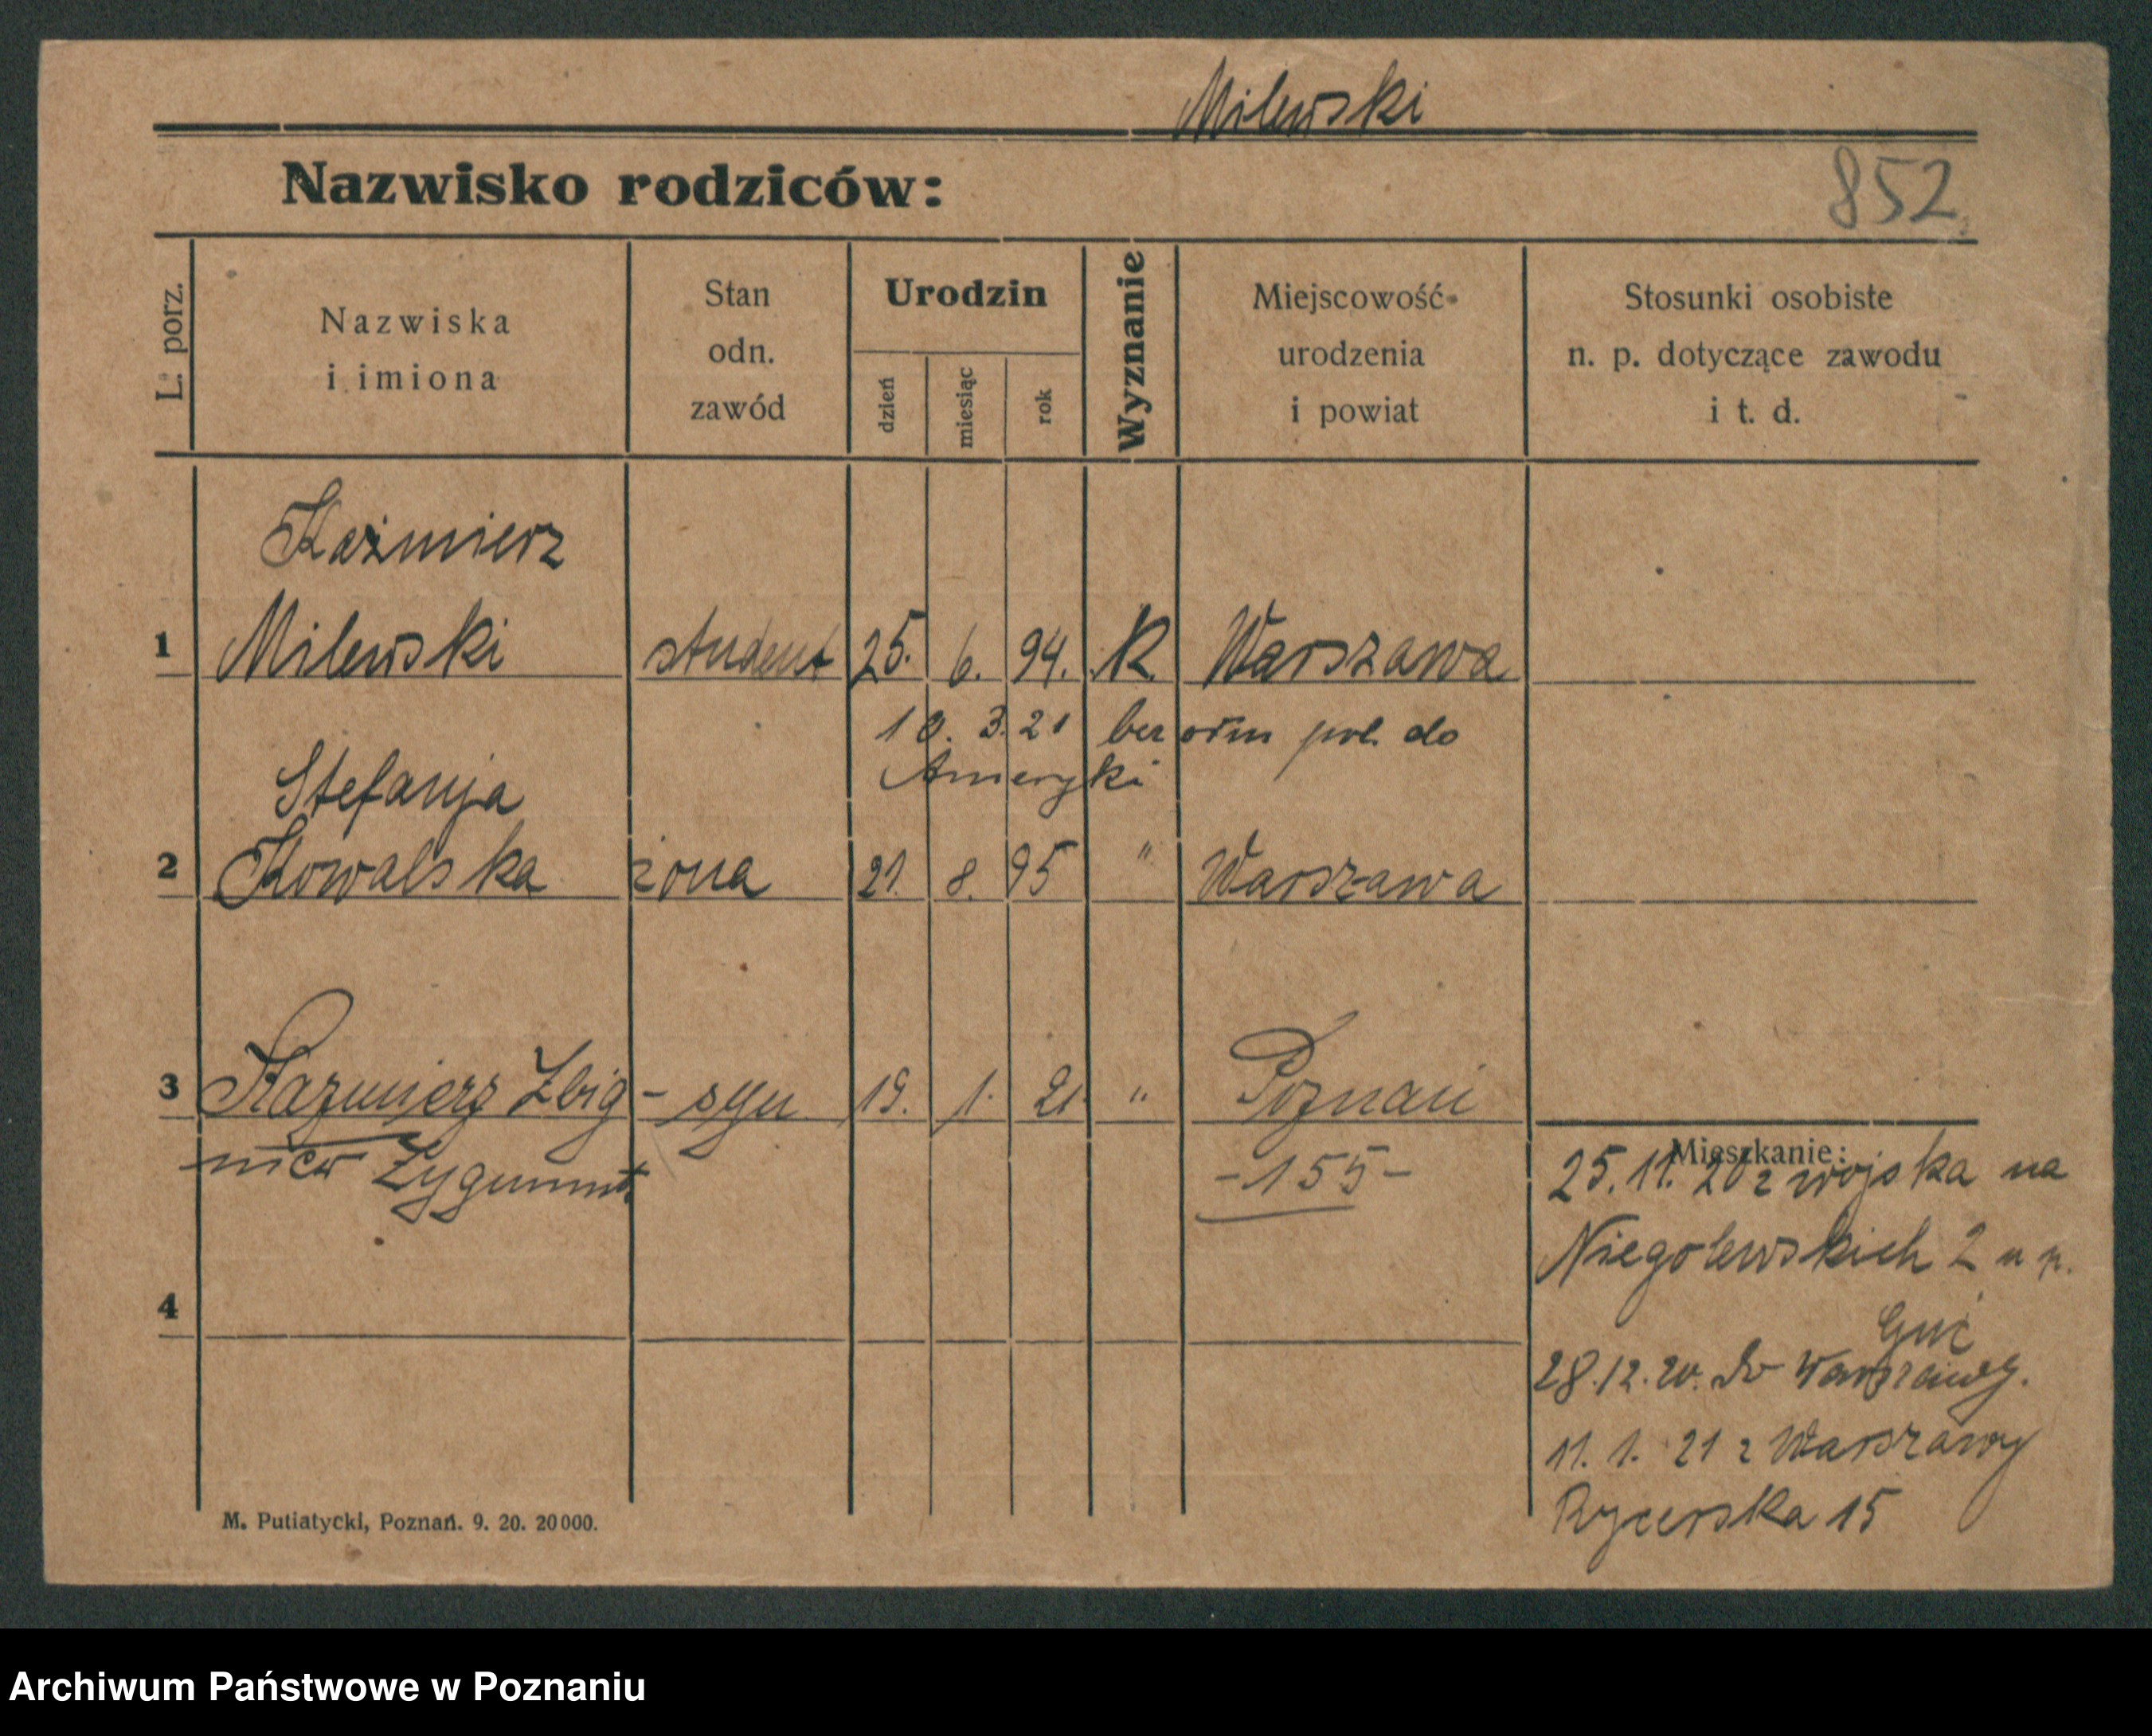 Milewski
Nazwisko rodziców:
852
L. porz.
Nazwiska
i imiona
Stan
odn.
zawód
Urodzin
dzień
miesiąc
rok
Wyznanie
Miejscowość
urodzenia
i powiat
Stosunki osobiste
n. p. dotyczące zawodu
i t. d.
Kaźmierz
1 Milewski student 25. 6. 94. R. Warszawa
10. 3. 21 bez odm pol. do
Ameryki
Stefanja
2 Kowalska żona 21. 8. 95 " Warszawa
3 Kazmierz Zbig- syn 19. 1. 21 " Poznań
niew Zygmunt
-155-
Mieszkanie:
25.11.20 z wojska na
Niegolewskich 2
4
28.12.20. do Warszawy.
11. 1. 21 z Warszawy
Rycerska 15
M. Putiatycki, Poznań. 9. 20. 20000.
Archiwum Państwowe w Poznaniu